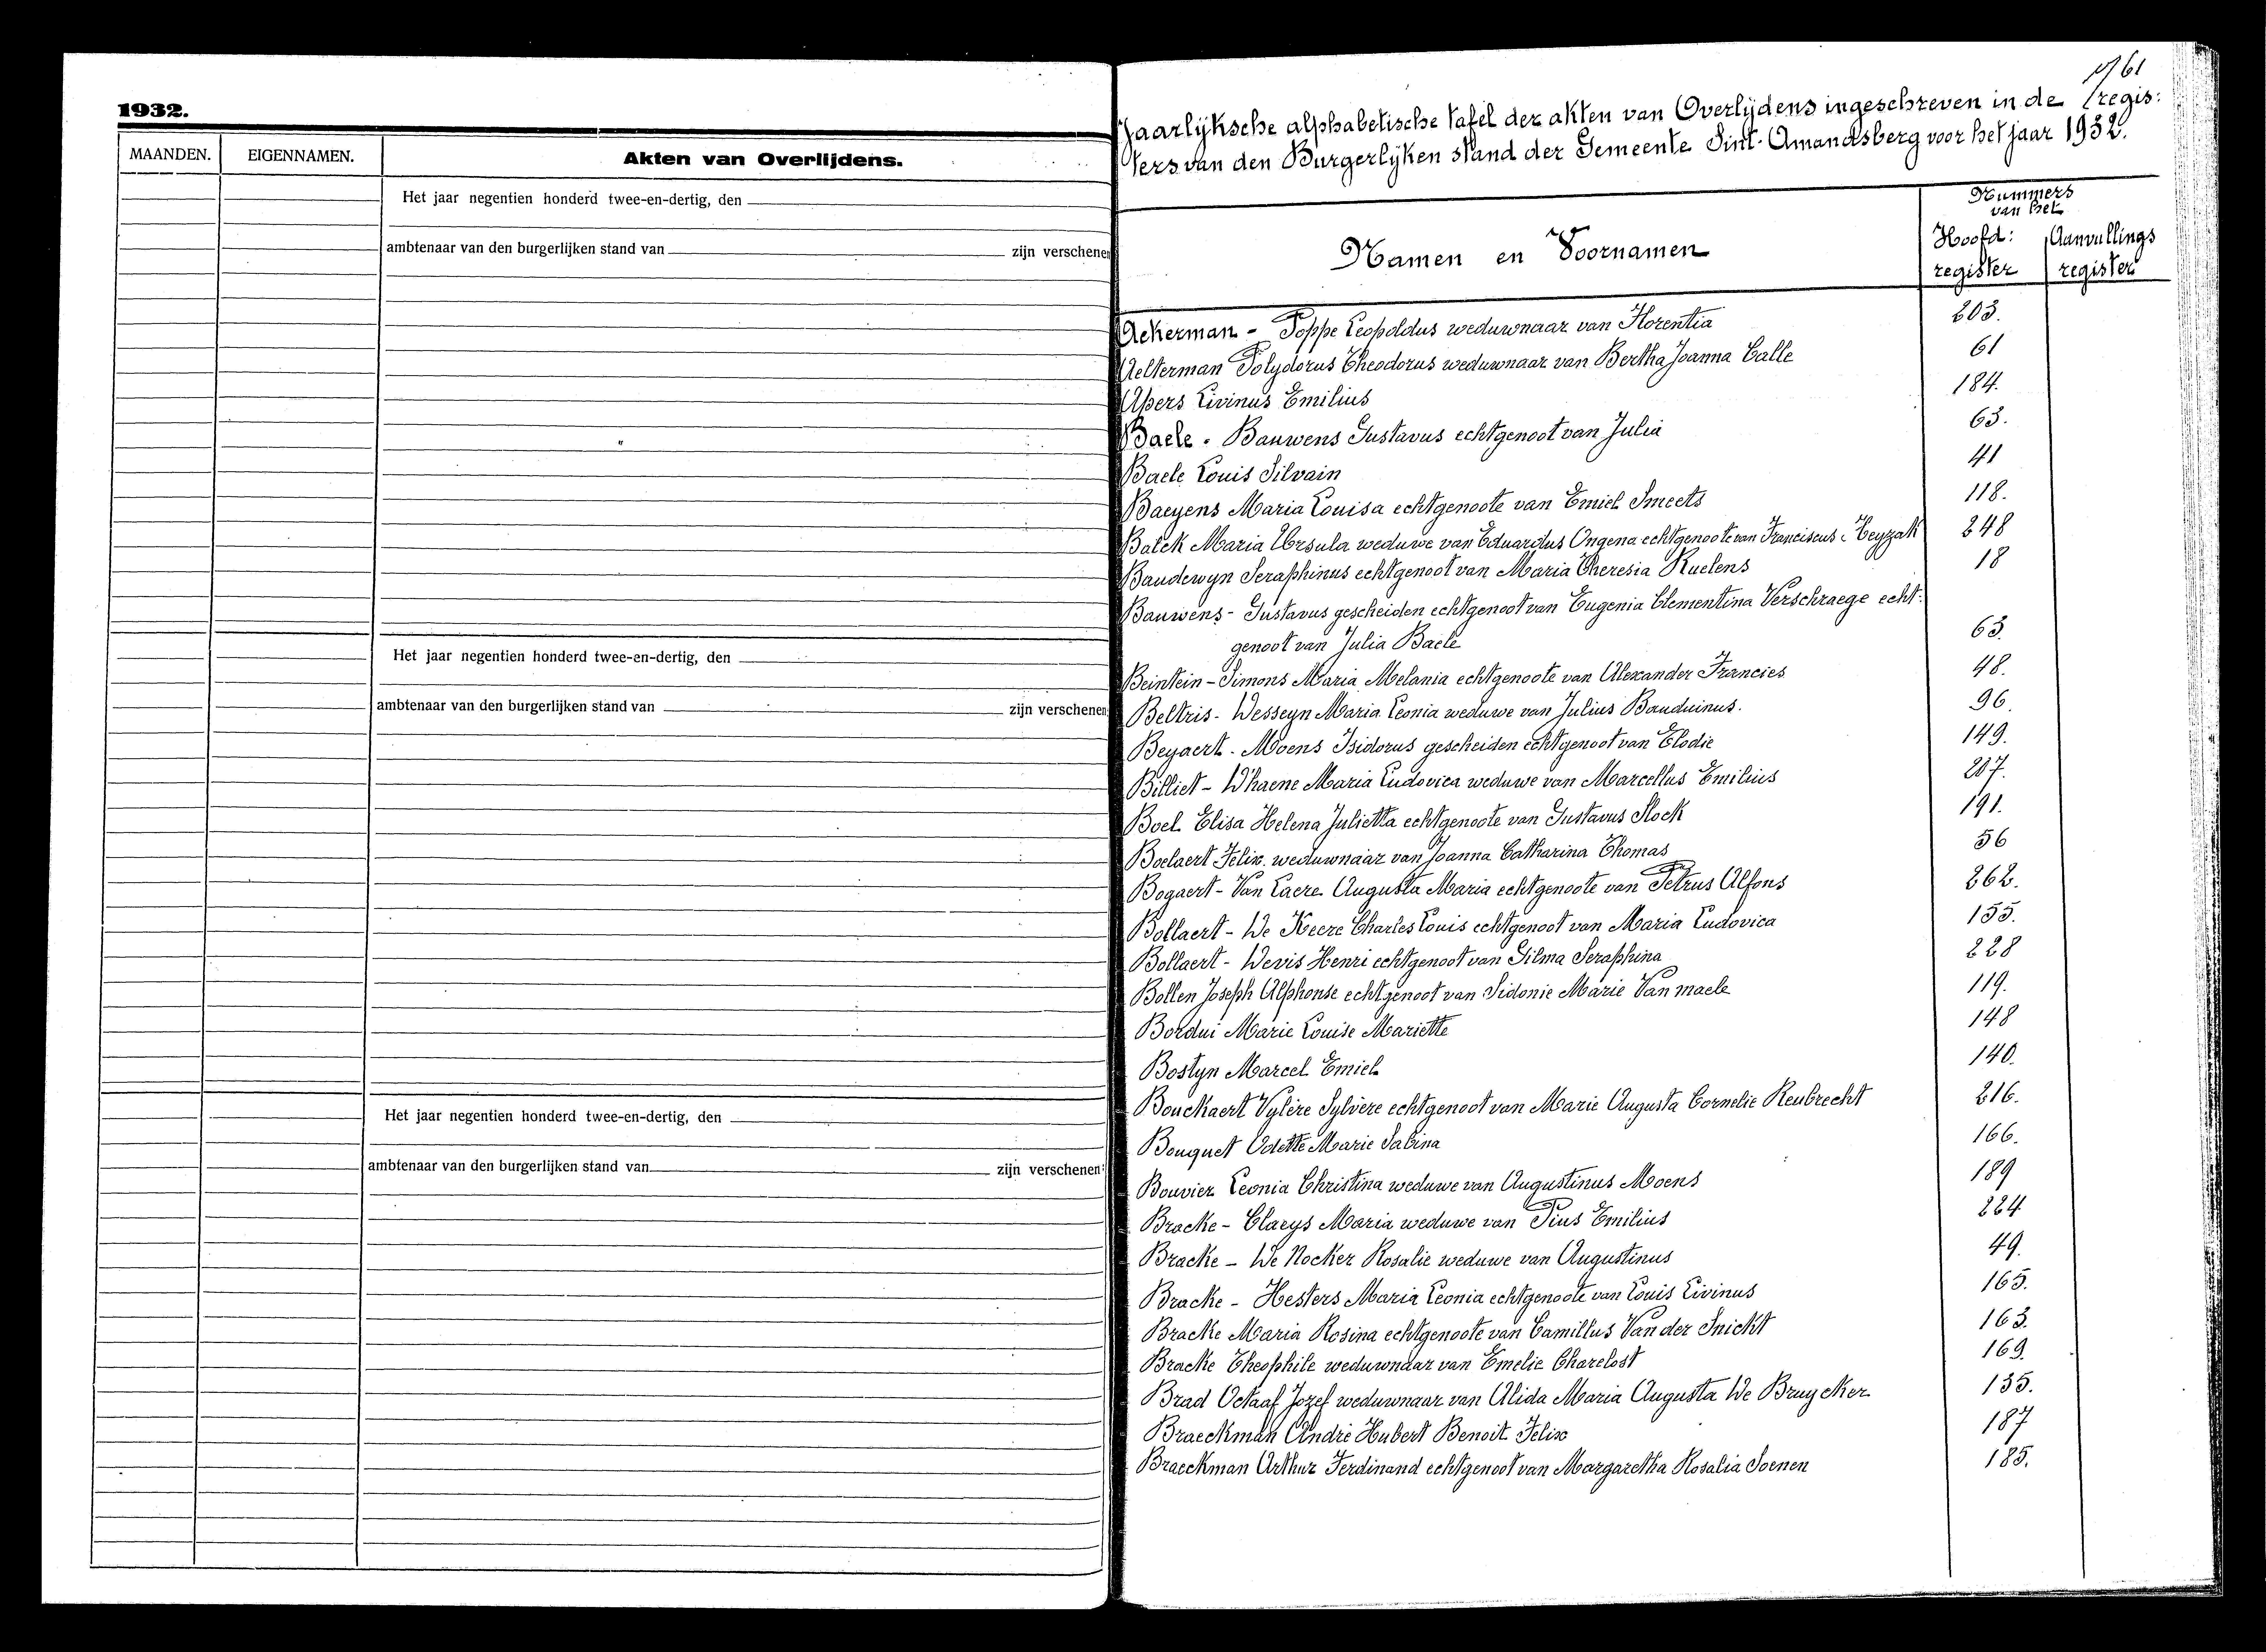 1932.
MAANDEN. EIGENNAMEN. Akten van Overlijdens.
Het jaar negentien honderd twee-en-dertig, den
ambtenaar van den burgerlijken stand van zijn verschenen
Het jaar negentien honderd twee-en-dertig, den
ambtenaar van den burgerlijken stand van zijn verschenen
Het jaar negentien honderd twee-en-dertig, den
ambtenaar van den burgerlijken stand van zijn verschenen
61
Jaarlijksche alphabetische tafel der akten van Overlijdens ingeschreven in de regis:
ters van den Burgerlijken stand der Gemeente Sint-Amandsberg voor het jaar 1932.
Namen en Voornamen
Nummers
van het
Hoofd: Aanvullings
register register
Ackerman - Poppe Leopoldus weduwnaar van Florentia 203.
Aelterman Polydorus Theodorus weduwnaar van Bertha Joanna Calle 61
Apers Livinus Emilius 184.
Baele - Bauwens Gustavus echtgenoot van Julia 63.
Baele Louis Silvain 41
Baeyens Maria Louisa echtgenoote van Emiel Smeets 118.
Balck Maria Ursula weduwe van Eduardus Ongena echtgenoote van Franciscus 248
Baudewyn Seraphinus echtgenoot van Maria Theresia Ruelens 18
Bauwens - Gustavus gescheiden echtgenoot van Eugenia Clementina Verschraege echt-
genoot van Julia Baele 63.
Beintein - Simons Maria Melania echtgenoote van Alexander Francies 48.
Beltris - Wesseyn Maria Leonia weduwe van Julius Bauduinus. 96.
Beyaert - Moens Isidorus gescheiden echtgenoot van Elodie 149.
Billiet - D'haene Maria Ludovica weduwe van Marcellus Emilius 207.
Boel Elisa Helena Julietta echtgenoote van Gustavus Slock 191.
Boelaert Felix weduwnaar van Joanna Catharina Thomas 56
Bogaert - Van Laere Augusta Maria echtgenoote van Petrus Alfons 262.
Bollaert - De Keere Charles Louis echtgenoot van Maria Ludovica 155.
Bollaert - Devis Henri echtgenoot van Silma Seraphina 228
Bollen Joseph Alphonse echtgenoot van Sidonie Marie Van maele 119.
Bordui Marie Louise Mariette 148
Bostyn Marcel Emiel 140.
Bouckaert Vylère Sylvère echtgenoot van Marie Augusta Cornelie Reubrecht 216.
Bouquet Odette Marie Sabina 166.
Bouvier Leonia Christina weduwe van Augustinus Moens 189
Bracke - Claeys Maria weduwe van Pius Emilius 224
Bracke - De Nocker Rosalie weduwe van Augustinus 49.
Bracke - Hesters Maria Leonia echtgenoote van Louis Livinus 165.
Bracke Maria Rosina echtgenoote van Camillus Van der Snickt 163.
Bracke Theophile weduwnaar van Emelie Charelost 169.
Brad Octaaf Jozef weduwnaar van Alida Maria Augusta De Bruycker 135.
Braeckman André Hubert Benoit Felix 187
Braeckman Arthur Ferdinand echtgenoot van Margaretha Rosalia Soenen 185.